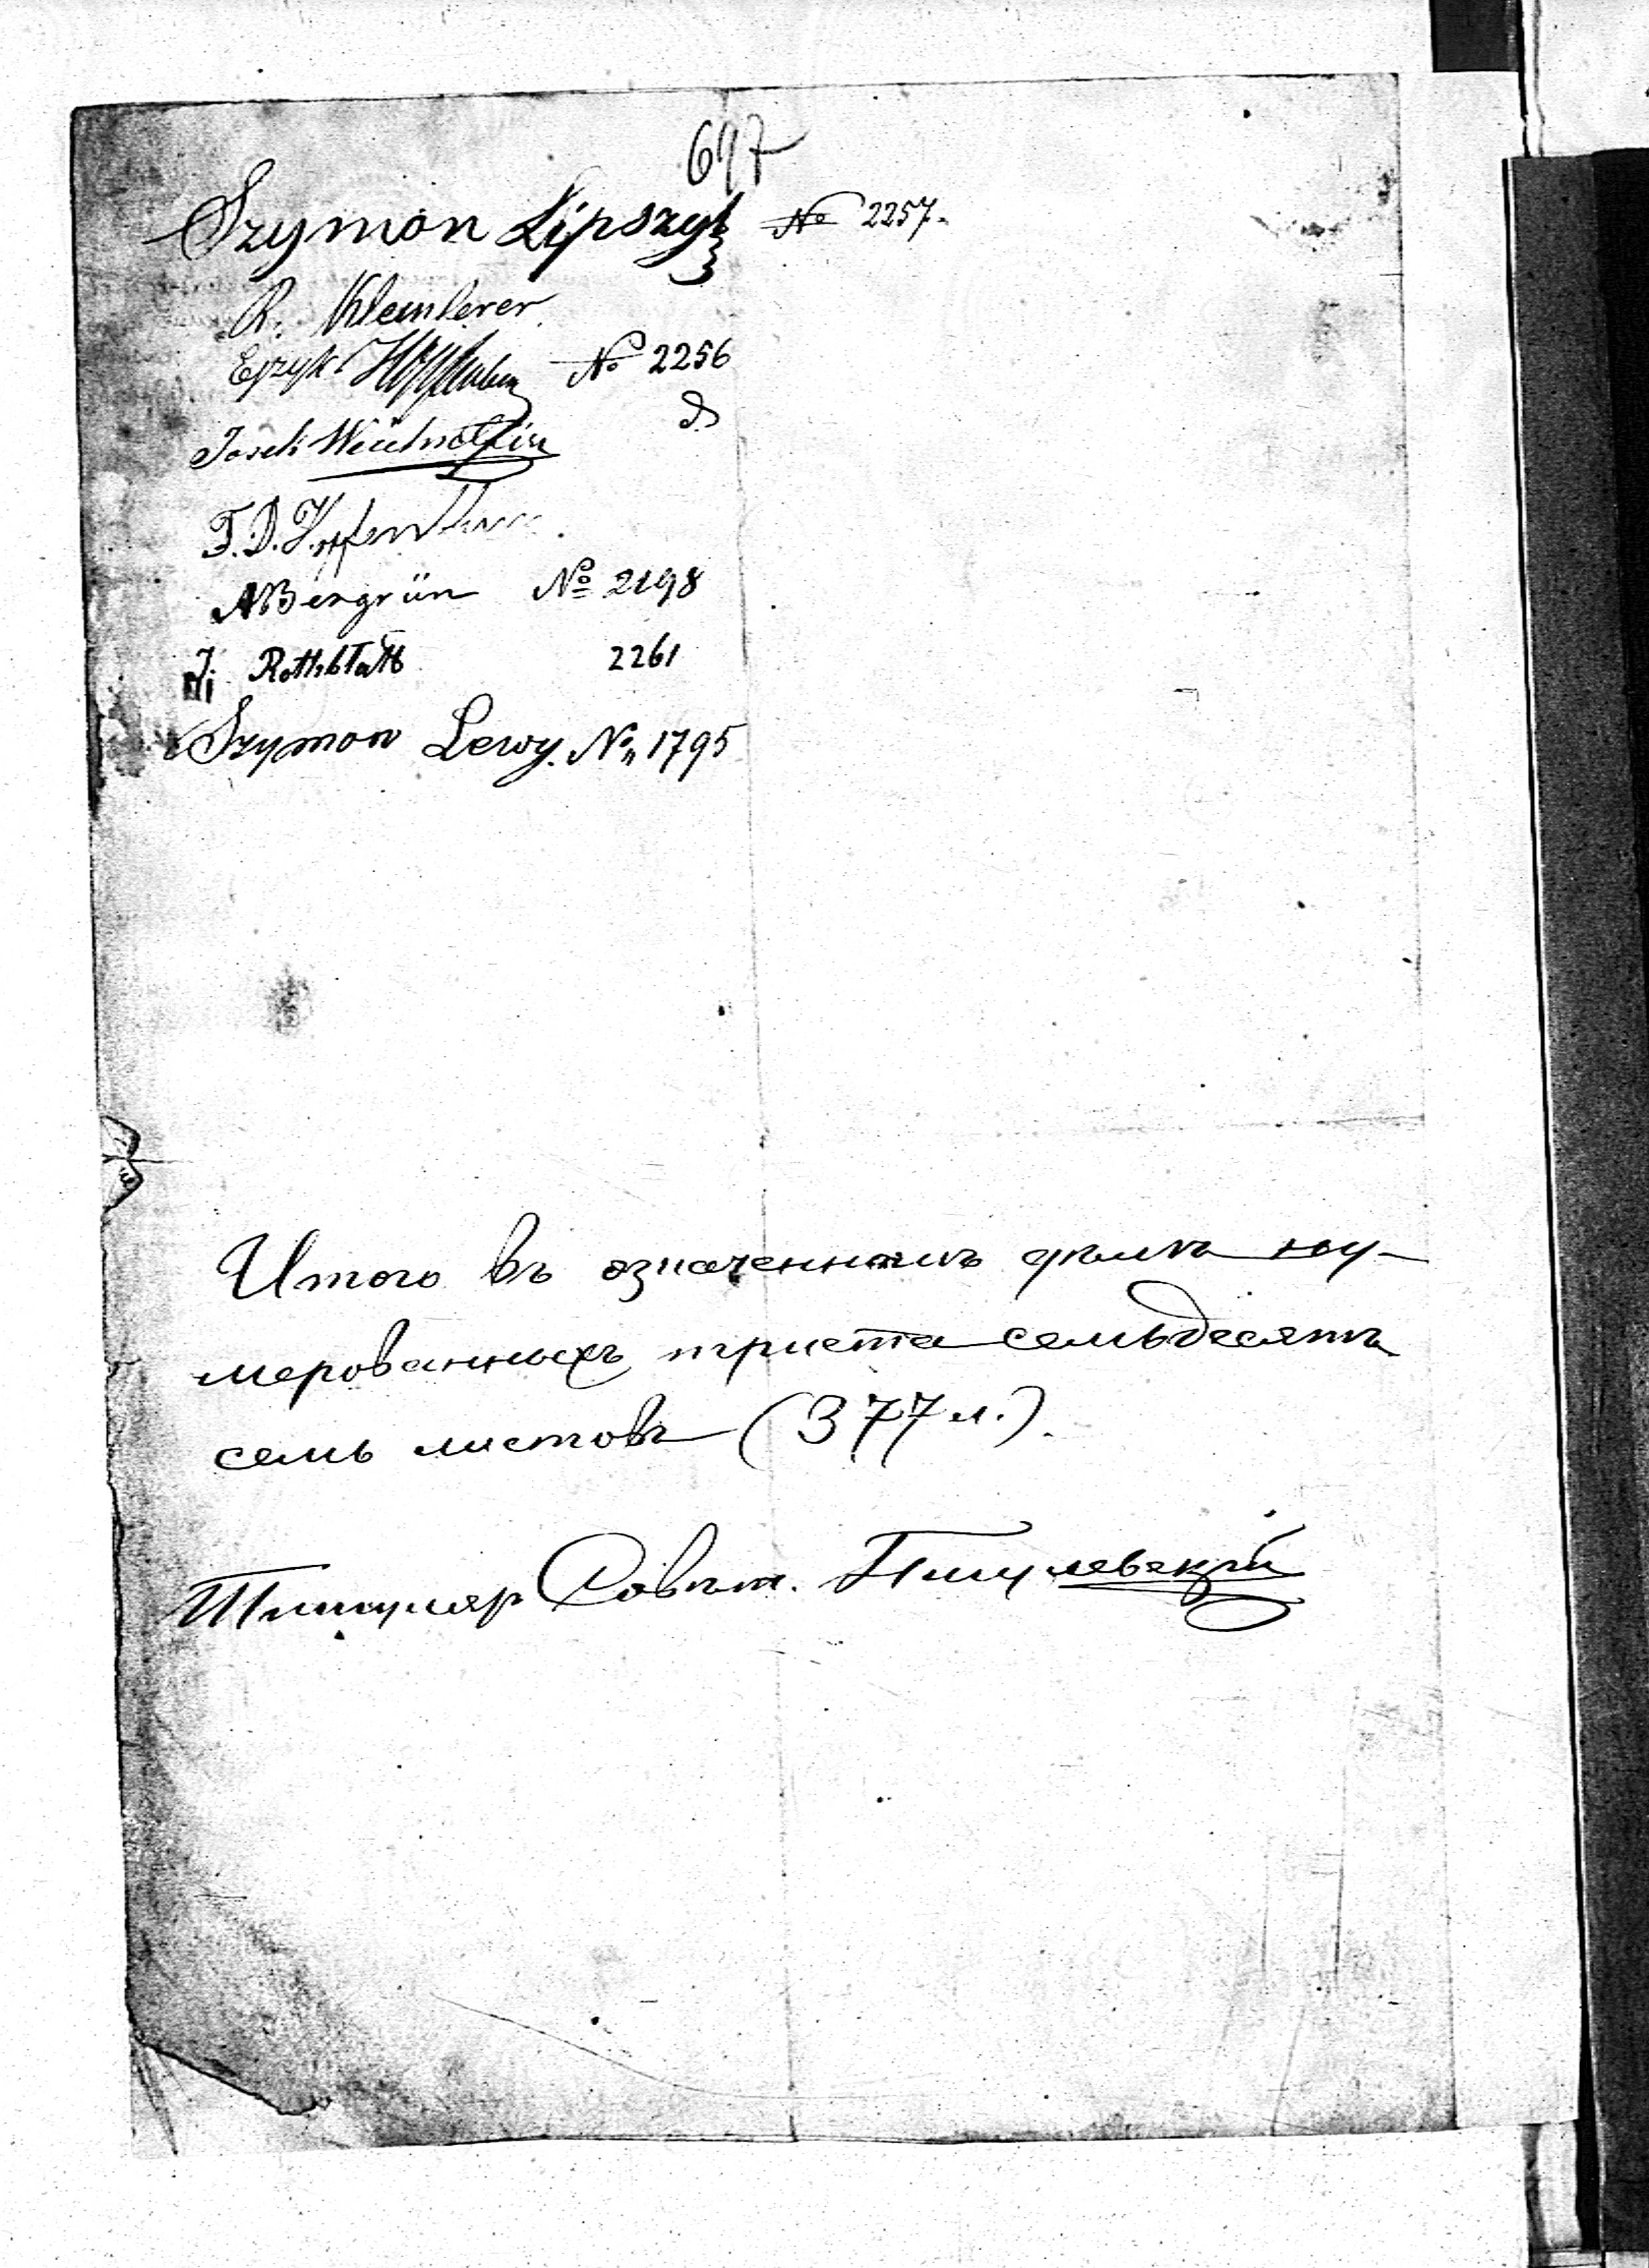 697
Szymon Lipszyc № 2257.
R.
№ 2256
Josek
F. D.
A Bergrün № 2198
J. Rothblatt 2261
Szymon Lewy. № 1795
Итого въ означенномъ дѣлѣ ну-
мерованныхъ триста семьдесятъ
семь листовъ (377 л.).
Титуляр Совѣт.